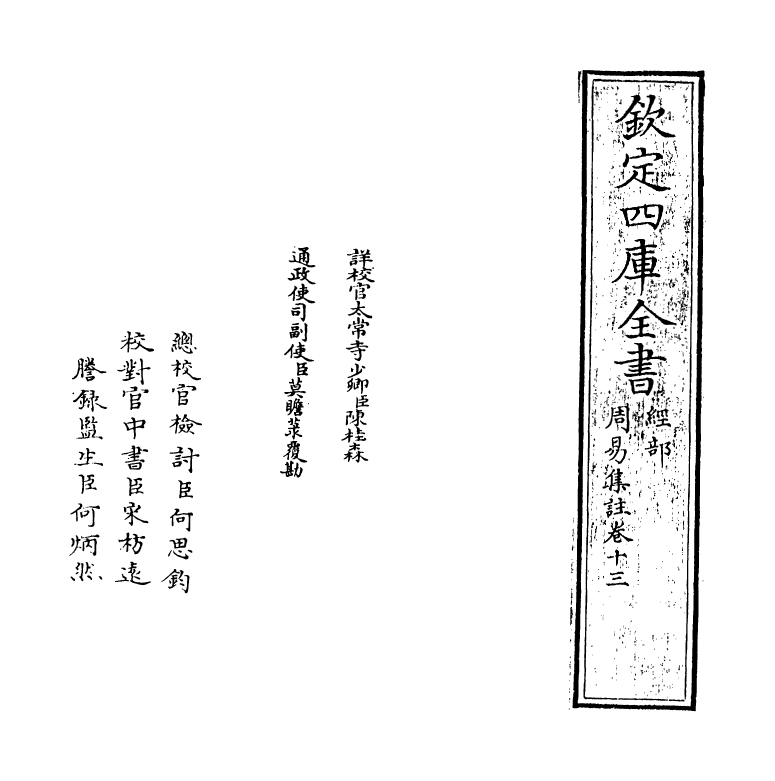 欽定四庫全書
經部
周易集註卷十三
詳校官太常寺少卿臣陳桂森
通政使司副使臣莫瞻菉覆勘
總校官檢討臣何思鈞
校對官中書臣宋枋遠
謄錄監生臣何炳然